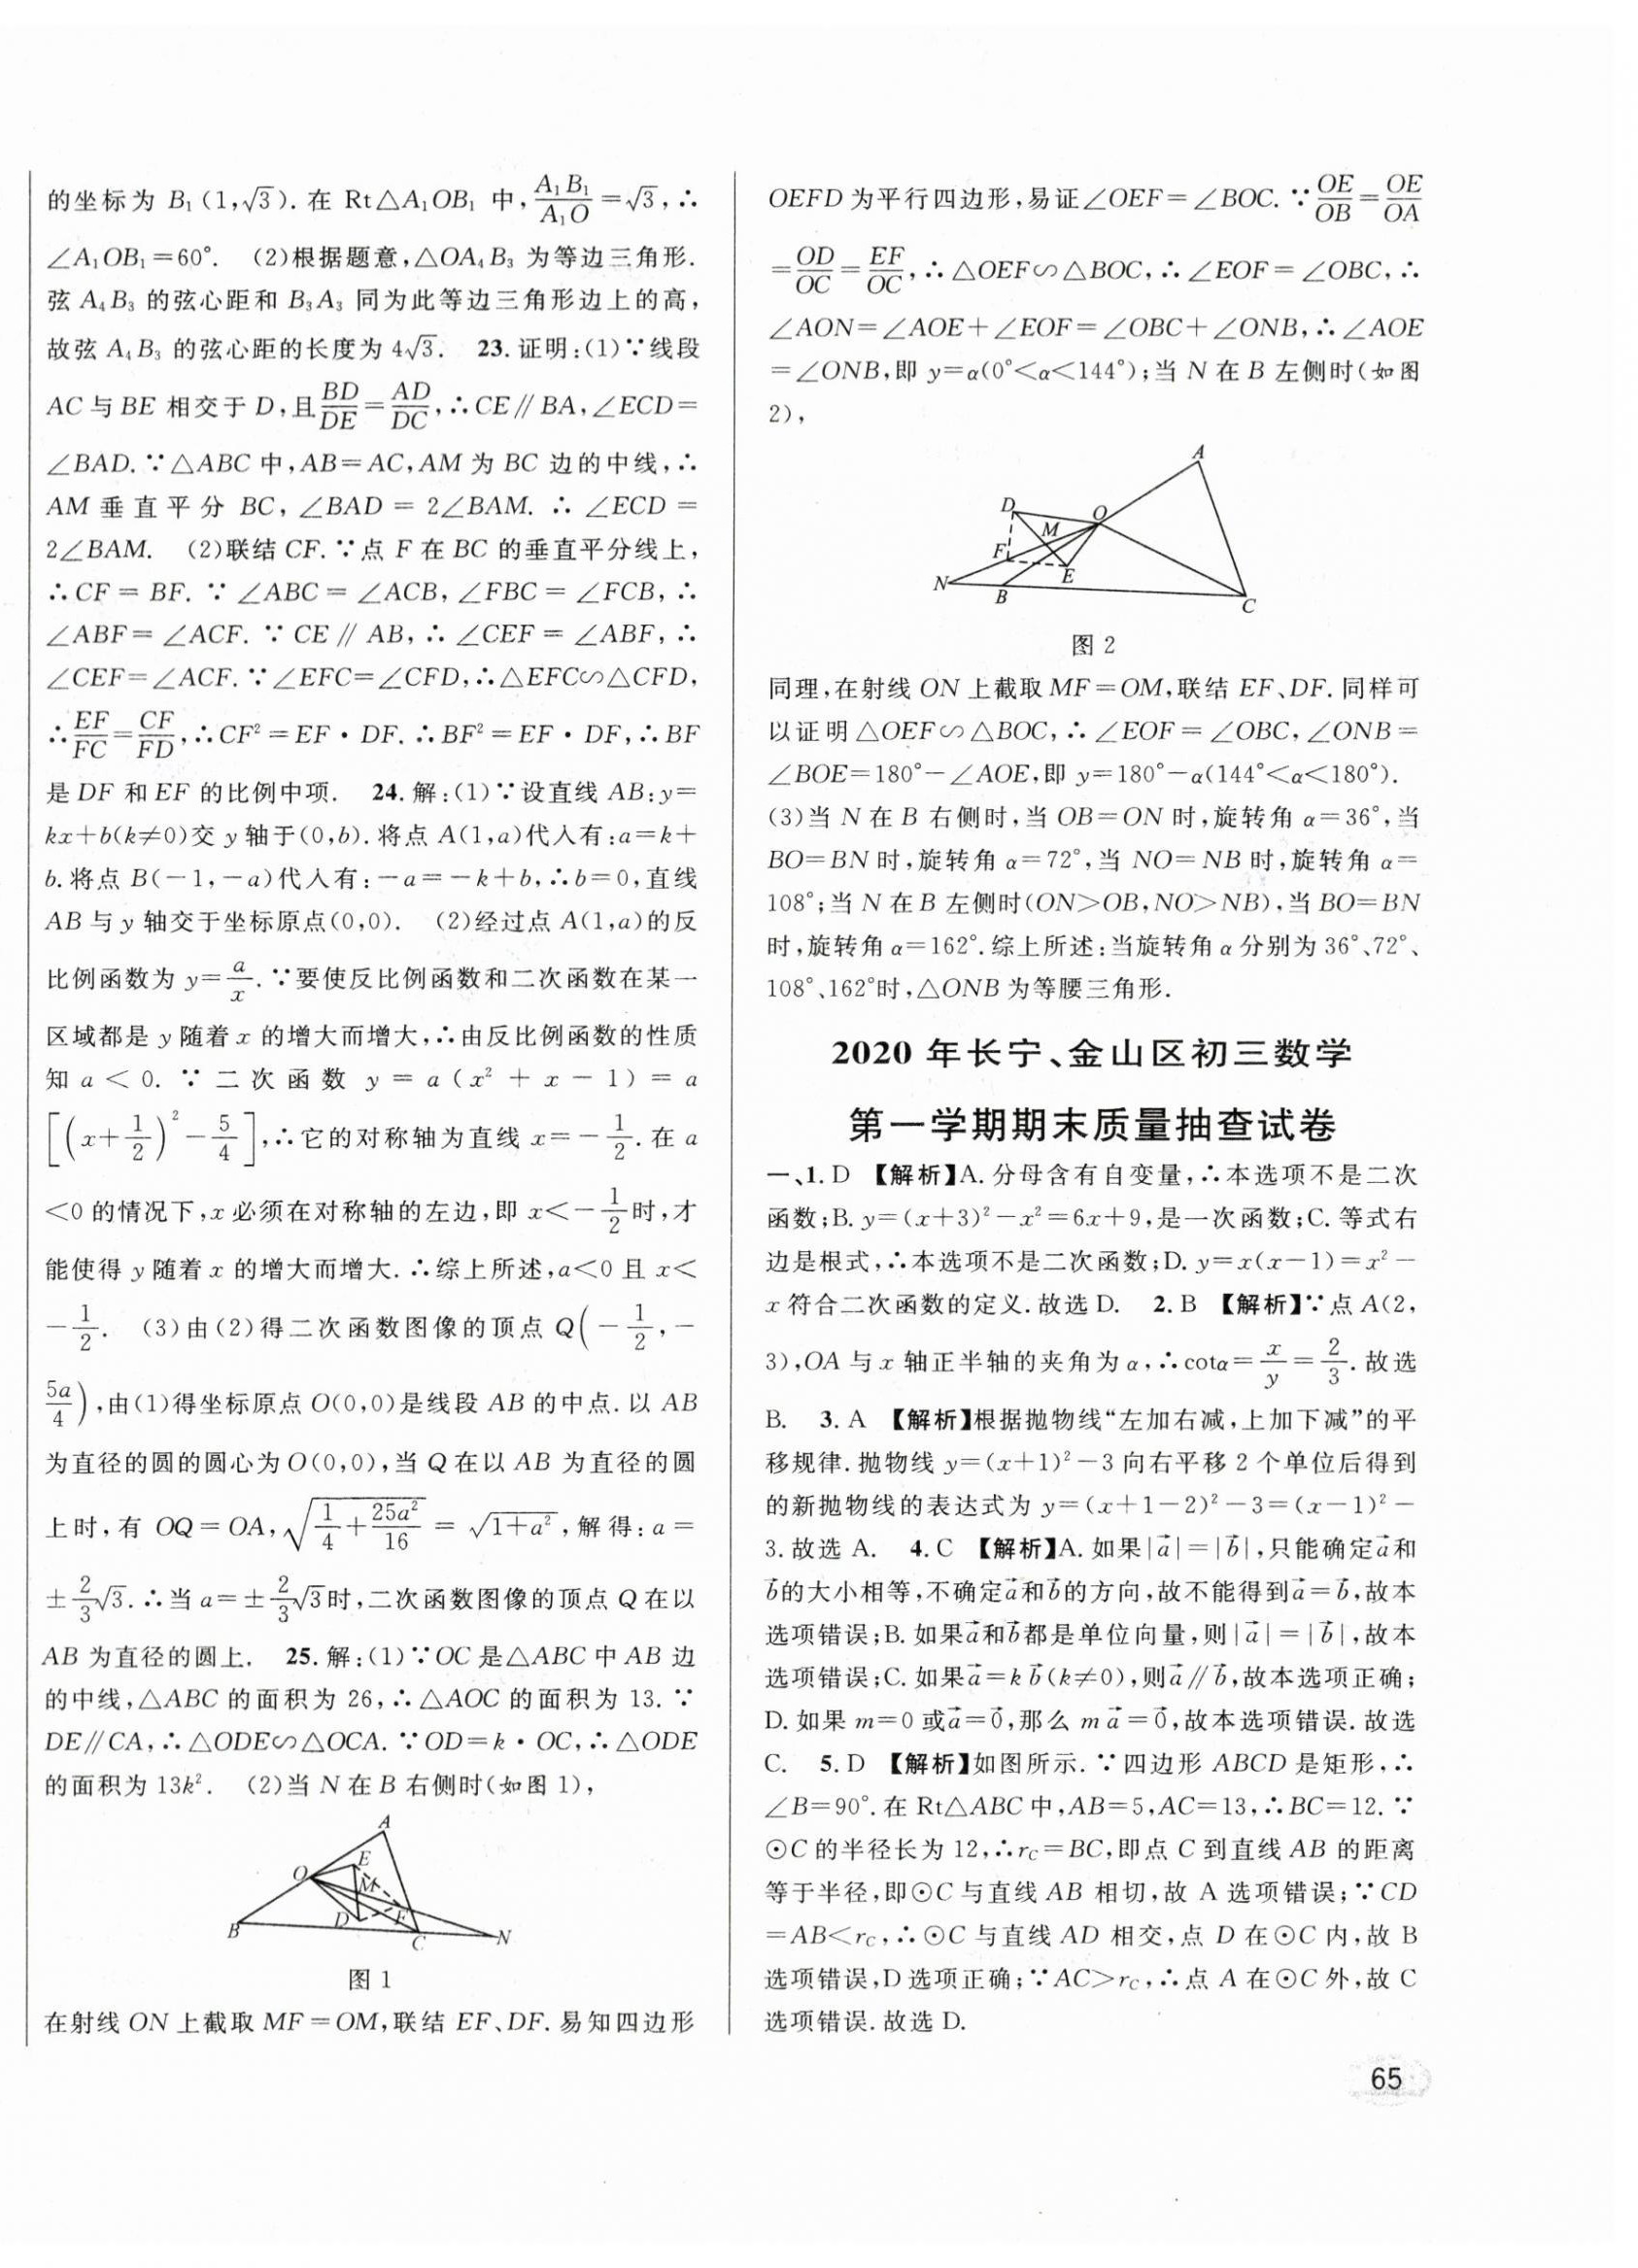 的坐标为 B₁(1,√3). 在 Rt△A₁OB₁ 中, A₁B₁/A₁O=√3, ∴
∠A₁OB₁=60°. (2)根据题意,△OA₄B₃ 为等边三角形.
弦 A₄B₃ 的弦心距和 B₃A₃ 同为此等边三角形边上的高,
故弦 A₄B₃ 的弦心距的长度为 4√3. 23. 证明:(1)∵线段
AC 与 BE 相交于 D,且 BD/DE=AD/DC,∴CE∥BA,∠ECD=
∠BAD. ∵△ABC 中,AB=AC,AM 为 BC 边的中线,∴
AM 垂直平分 BC,∠BAD=2∠BAM. ∴∠ECD=
2∠BAM. (2)联结 CF. ∵点 F 在 BC 的垂直平分线上,
∴CF=BF. ∵∠ABC=∠ACB,∠FBC=∠FCB,∴
∠ABF=∠ACF. ∵CE∥AB,∴∠CEF=∠ABF,∴
∠CEF=∠ACF. ∵∠EFC=∠CFD,∴△EFC∽△CFD,
∴EF/FC=CF/FD,∴CF²=EF·DF. ∴BF²=EF·DF,∴BF
是 DF 和 EF 的比例中项. 24. 解:(1)∵设直线 AB:y=
kx+b(k≠0)交 y 轴于(0,b). 将点 A(1,a)代入有:a=k+
b. 将点 B(-1,-a)代入有:-a=-k+b,∴b=0,直线
AB 与 y 轴交于坐标原点(0,0). (2)经过点 A(1,a)的反
比例函数为 y=a/x. ∵要使反比例函数和二次函数在某一
区域都是 y 随着 x 的增大而增大,∴由反比例函数的性质
知 a<0. ∵二次函数 y=a(x²+x-1)=a
[(x+1/2)²-5/4],∴它的对称轴为直线 x=-1/2. 在 a
<0 的情况下,x 必须在对称轴的左边,即 x<-1/2时,才
能使得 y 随着 x 的增大而增大. ∴综上所述,a<0 且 x<
-1/2. (3)由(2)得二次函数图像的顶点 Q(-1/2,-
5a/4),由(1)得坐标原点 O(0,0)是线段 AB 的中点. 以 AB
为直径的圆的圆心为 O(0,0),当 Q 在以 AB 为直径的圆
上时,有 OQ=OA,√(1/4+25a²/16)=√(1+a²),解得:a=
±2/3√3. ∴当 a=±2/3√3时,二次函数图像的顶点 Q 在以
AB 为直径的圆上. 25. 解:(1)∵OC 是△ABC 中 AB 边
的中线,△ABC 的面积为 26,∴△AOC 的面积为 13. ∵
DE∥CA,∴△ODE∽△OCA. ∵OD=k·OC,∴△ODE
的面积为 13k². (2)当 N 在 B 右侧时(如图 1),
A
O E
M
B D F
C N
图 1
在射线 ON 上截取 MF=OM,联结 EF、DF. 易知四边形
OEFD 为平行四边形,易证∠OEF=∠BOC. ∵OE/OB=OE/OA
=OD/OC=EF/OC,∴△OEF∽△BOC,∴∠EOF=∠OBC,∴
∠AON=∠AOE+∠EOF=∠OBC+∠ONB,∴∠AOE
=∠ONB,即 y=α(0°<α<144°);当 N 在 B 左侧时(如图
2),
A
D O
M
F
N E
B C
图 2
同理,在射线 ON 上截取 MF=OM,联结 EF、DF. 同样可
以证明△OEF∽△BOC,∴∠EOF=∠OBC,∠ONB=
∠BOE=180°-∠AOE,即 y=180°-α(144°<α<180°).
(3)当 N 在 B 右侧时,当 OB=ON 时,旋转角 α=36°,当
BO=BN 时,旋转角 α=72°,当 NO=NB 时,旋转角 α=
108°;当 N 在 B 左侧时(ON>OB,NO>NB),当 BO=BN
时,旋转角 α=162°. 综上所述:当旋转角 α 分别为 36°、72°、
108°、162°时,△ONB 为等腰三角形.
2020 年长宁、金山区初三数学
第一学期期末质量抽查试卷
一、1. D 【解析】A. 分母含有自变量,∴本选项不是二次
函数;B. y=(x+3)²-x²=6x+9,是一次函数;C. 等式右
边是根式,∴本选项不是二次函数;D. y=x(x-1)=x²-
x 符合二次函数的定义. 故选 D. 2. B 【解析】∵点 A(2,
3),OA 与 x 轴正半轴的夹角为 α,∴cotα=x/y=2/3. 故选
B. 3. A 【解析】根据抛物线“左加右减,上加下减”的平
移规律. 抛物线 y=(x+1)²-3 向右平移 2 个单位后得到
的新抛物线的表达式为 y=(x+1-2)²-3=(x-1)²-
3. 故选 A. 4. C 【解析】A. 如果|a⃗|=|b⃗|,只能确定a⃗和
b⃗的大小相等,不确定a⃗和b⃗的方向,故不能得到a⃗=b⃗,故本
选项错误;B. 如果a⃗和b⃗都是单位向量,则|a⃗|=|b⃗|,故本
选项错误;C. 如果a⃗=k b⃗(k≠0),则a⃗∥b⃗,故本选项正确;
D. 如果 m=0 或a⃗=0⃗,那么 m a⃗=0⃗,故本选项错误. 故选
C. 5. D 【解析】如图所示. ∵四边形 ABCD 是矩形,∴
∠B=90°. 在 Rt△ABC 中,AB=5,AC=13,∴BC=12. ∵
⊙C 的半径长为 12,∴r_C=BC,即点 C 到直线 AB 的距离
等于半径,即⊙C 与直线 AB 相切,故 A 选项错误;∵CD
=AB<r_C,∴⊙C 与直线 AD 相交,点 D 在⊙C 内,故 B
选项错误,D 选项正确;∵AC>r_C,∴点 A 在⊙C 外,故 C
选项错误. 故选 D.
65